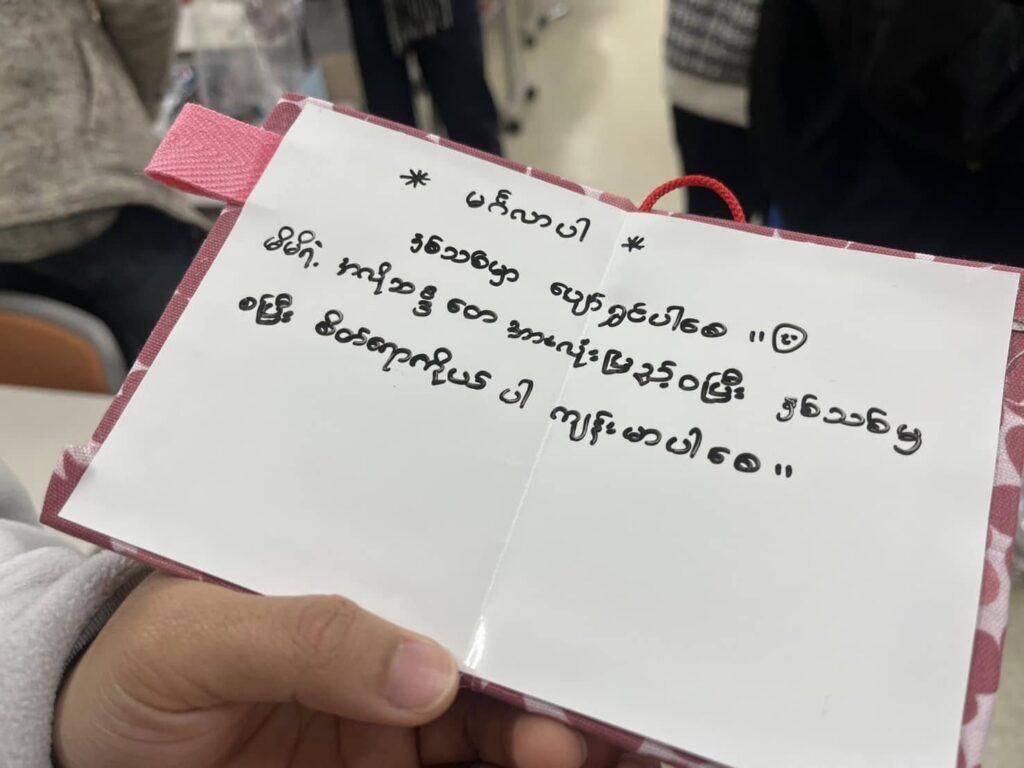 * မင်္ဂလာပါ *
နှစ်သစ်မှာ ပျော်ရွှင်ပါစေ ။
မိမိရဲ့ အလိုဆန္ဒ တေ အားလုံးပြည့်ဝပြီး နှစ်သစ်မှ
စပြီး စိတ်ရောကိုယ် ပါ ကျန်းမာပါစေ ။